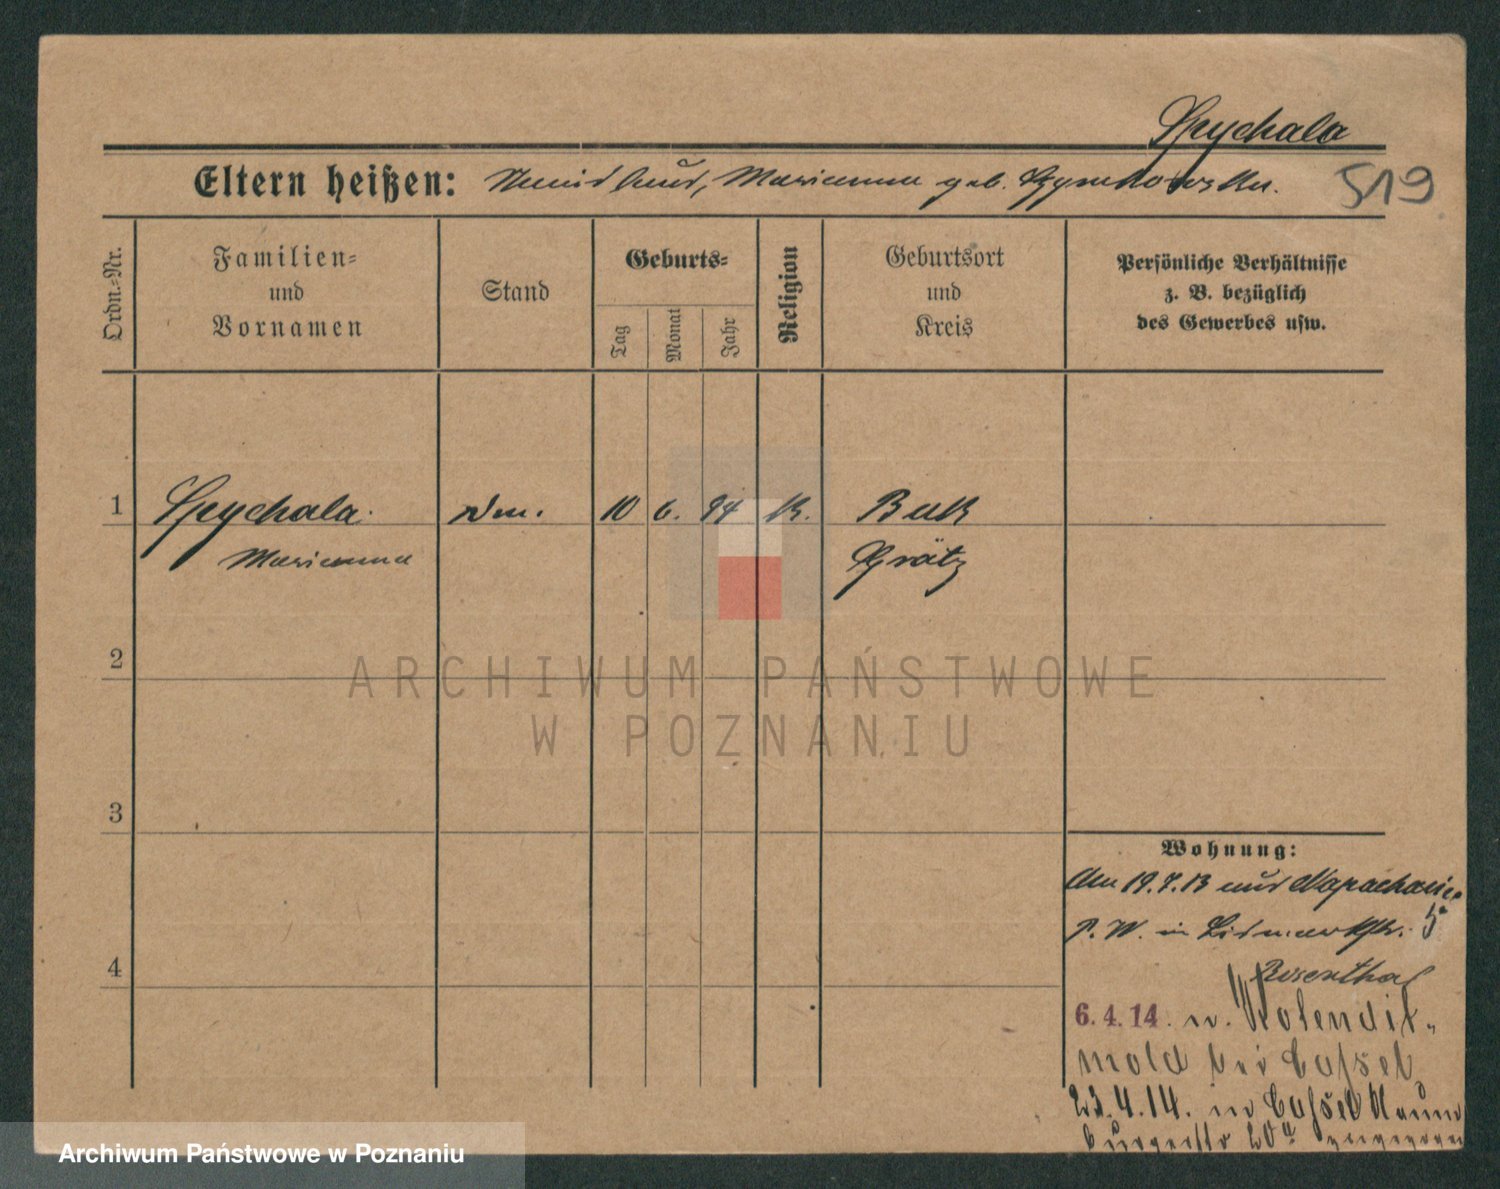 Spychala
Eltern heißen: Marianna geb.
519
Ordn.-Nr.
Familien-
und
Vornamen
Stand
Geburts-
Tag
Monat
Jahr
Religion
Geburtsort
und
Kreis
Persönliche Verhältnisse
z. B. bezüglich
des Gewerbes usw.
1 Spychala. 10 6. 94 K. Buk
Marianna Grätz
2
ARCHIWUM PAŃSTWOWE
W POZNANIU
3
Wohnung:
Am 19.7.13 aus Napachanie
in Bismarckstr. 5
4
Rosenthal
6.4.14. n. Rotendit-
mold bei Cassel
23.4.14. in Cassel Naum
burgerstr 20a
Archiwum Państwowe w Poznaniu